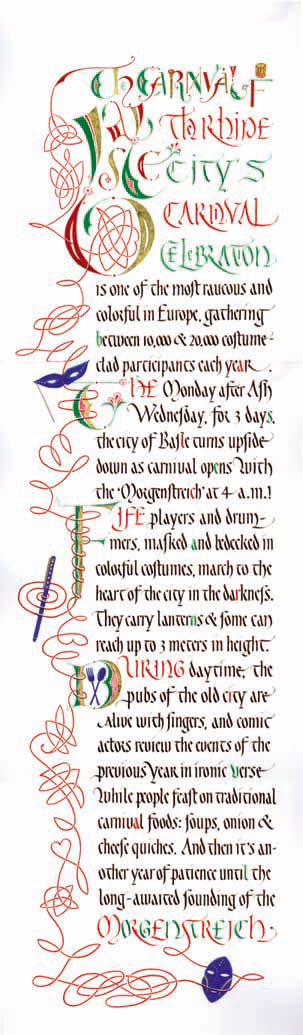 The CARNIVAL of
BASLE
The RHINE
CITY'S
CARNIVAL
CELEBRATION
is one of the most raucous and
colorful in Europe, gathering
between 10,000 & 20,000 costume-
clad participants each year.
THE Monday after Ash
Wednesday, for 3 days,
the city of Basle turns upside
down as carnival opens with
the 'Morgenstreich' at 4 a.m.!
FIFE players and drum-
mers, masked and bedecked in
colorful costumes, march to the
heart of the city in the darkness.
They carry lanterns & some can
reach up to 3 meters in height.
DURING daytime, the
pubs of the old city are
alive with singers, and comic
actors review the events of the
previous year in ironic verse
While people feast on traditional
carnival foods: soups, onion &
cheese quiches. And then it's an-
other year of patience until the
long-awaited sounding of the
MORGENSTREICH.